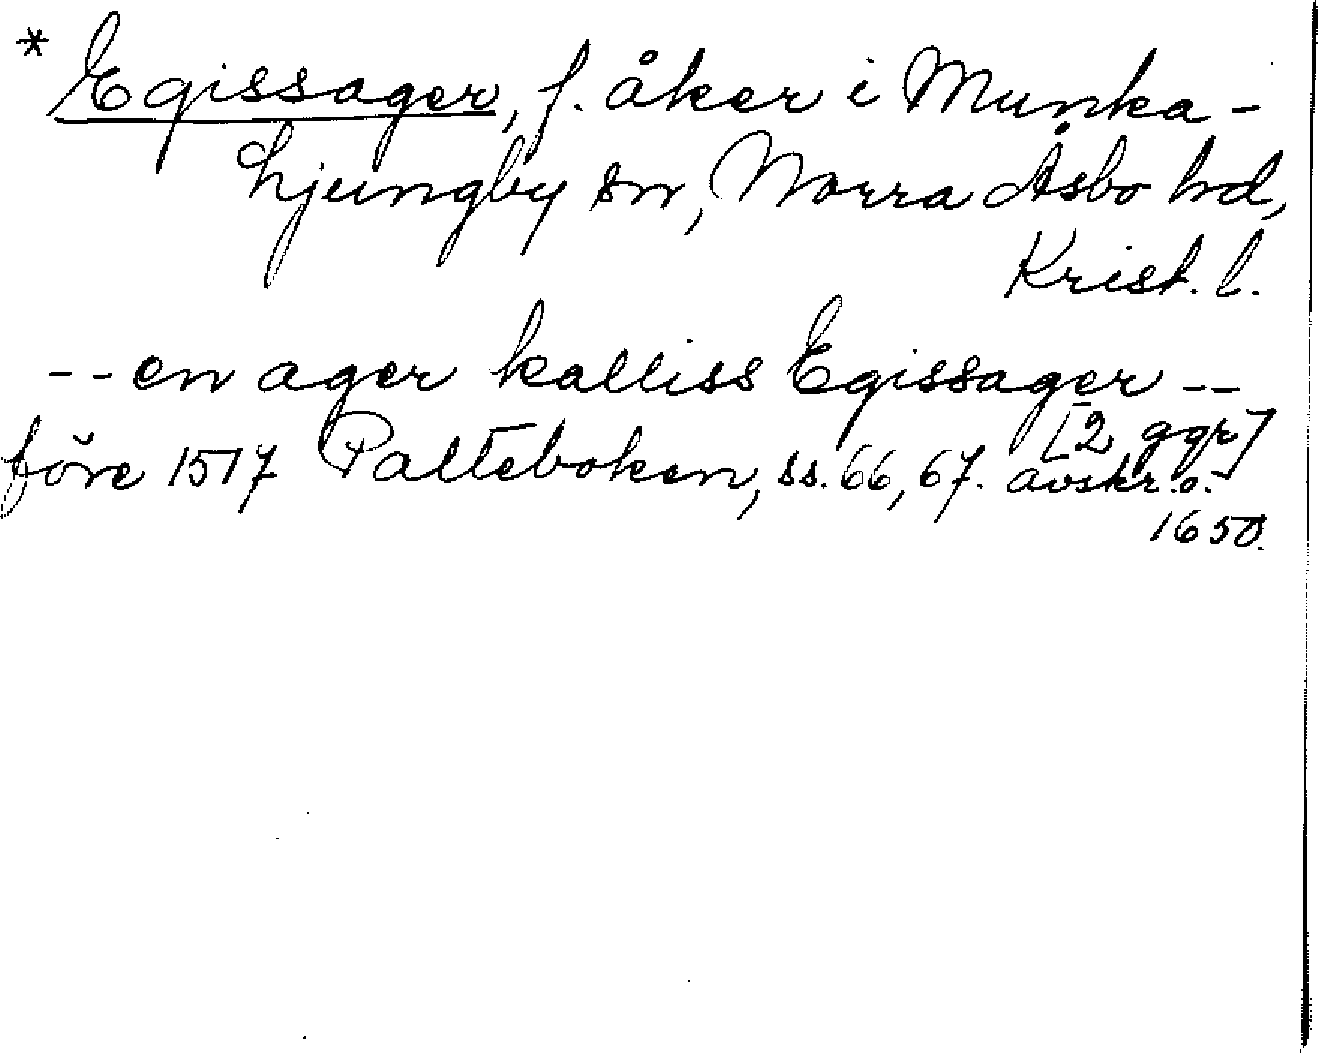 * Egissager, f. åker i Munka-
Ljungby sn, Norra Åsbo hd,
Krist. l.
-- en ager kalliss Egissager --
[2 ggr]
före 1517 Palteboken, ss. 66, 67. avskr. o.
1650.